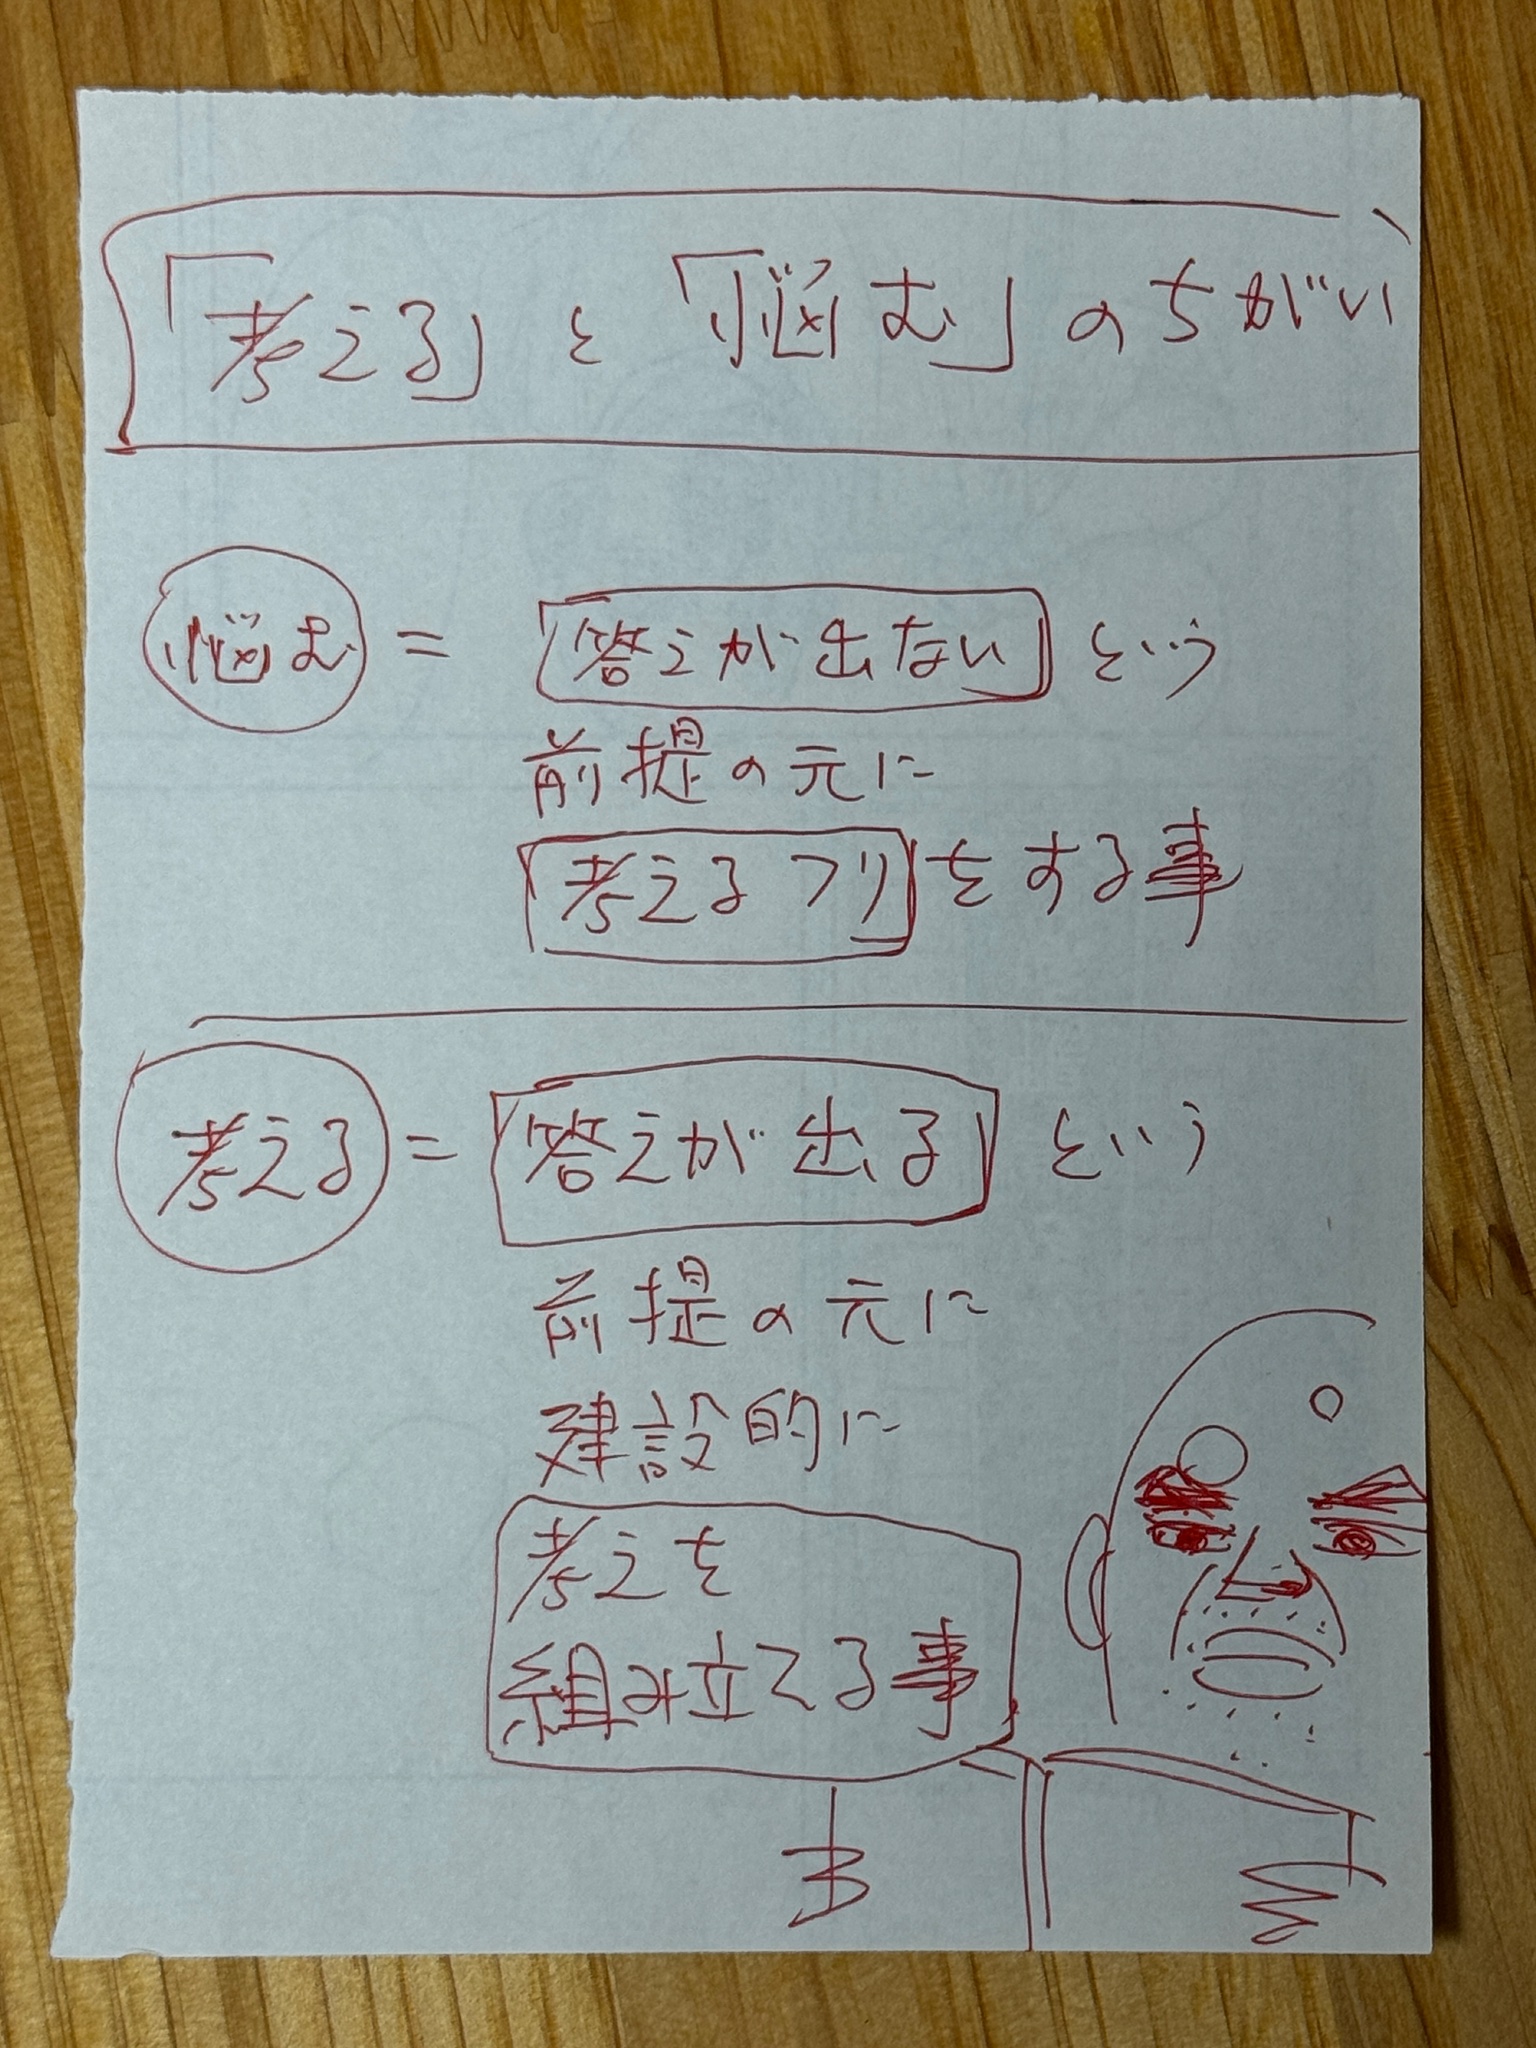 「考える」と「悩む」のちがい
悩む = 答えが出ない という
前提の元に
考えるフリをする事
考える = 答えが出る という
前提の元に
建設的に
考えを
組み立てる事